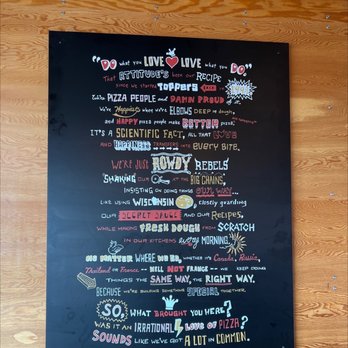 "DO what you LOVE LOVE what you DO."
THAT ATTITUDE'S been OUR RECIPE
SINCE WE STARTED TOPPERS
We're PIZZA PEOPLE and DAMN PROUD of
We're Happiest when we're ELBOWS DEEP in dough,
and HAPPY pizza people make BETTER pizza.
IT'S A SCIENTIFIC FACT, ALL THAT LOVE
AND HAPPINESS TRANSFERS INTO EVERY BITE.
WE'RE JUST ROWDY REBELS
SHAKING OUR AT THE BIG CHAINS,
INSISTING ON DOING THINGS OUR WAY...
LIKE USING WISCONSIN closely guarding
OUR SECRET SAUCE AND OUR RECIPES,
WHILE MAKING FRESH DOUGH FROM SCRATCH
IN OUR KITCHENS every MORNING.
NO MATTER WHERE WE'RE, WHETHER IT'S Canada, Russia,
Thailand or France -- WELL NOT FRANCE -- WE KEEP DOING
THINGS THE SAME WAY, THE RIGHT WAY.
BECAUSE WE'RE BUILDING SOMETHING SPECIAL TOGETHER.
SO, WHAT BROUGHT YOU HERE?
WAS IT AN IRRATIONAL LOVE OF PIZZA?
SOUNDS LIKE WE'VE GOT A LOT IN COMMON.